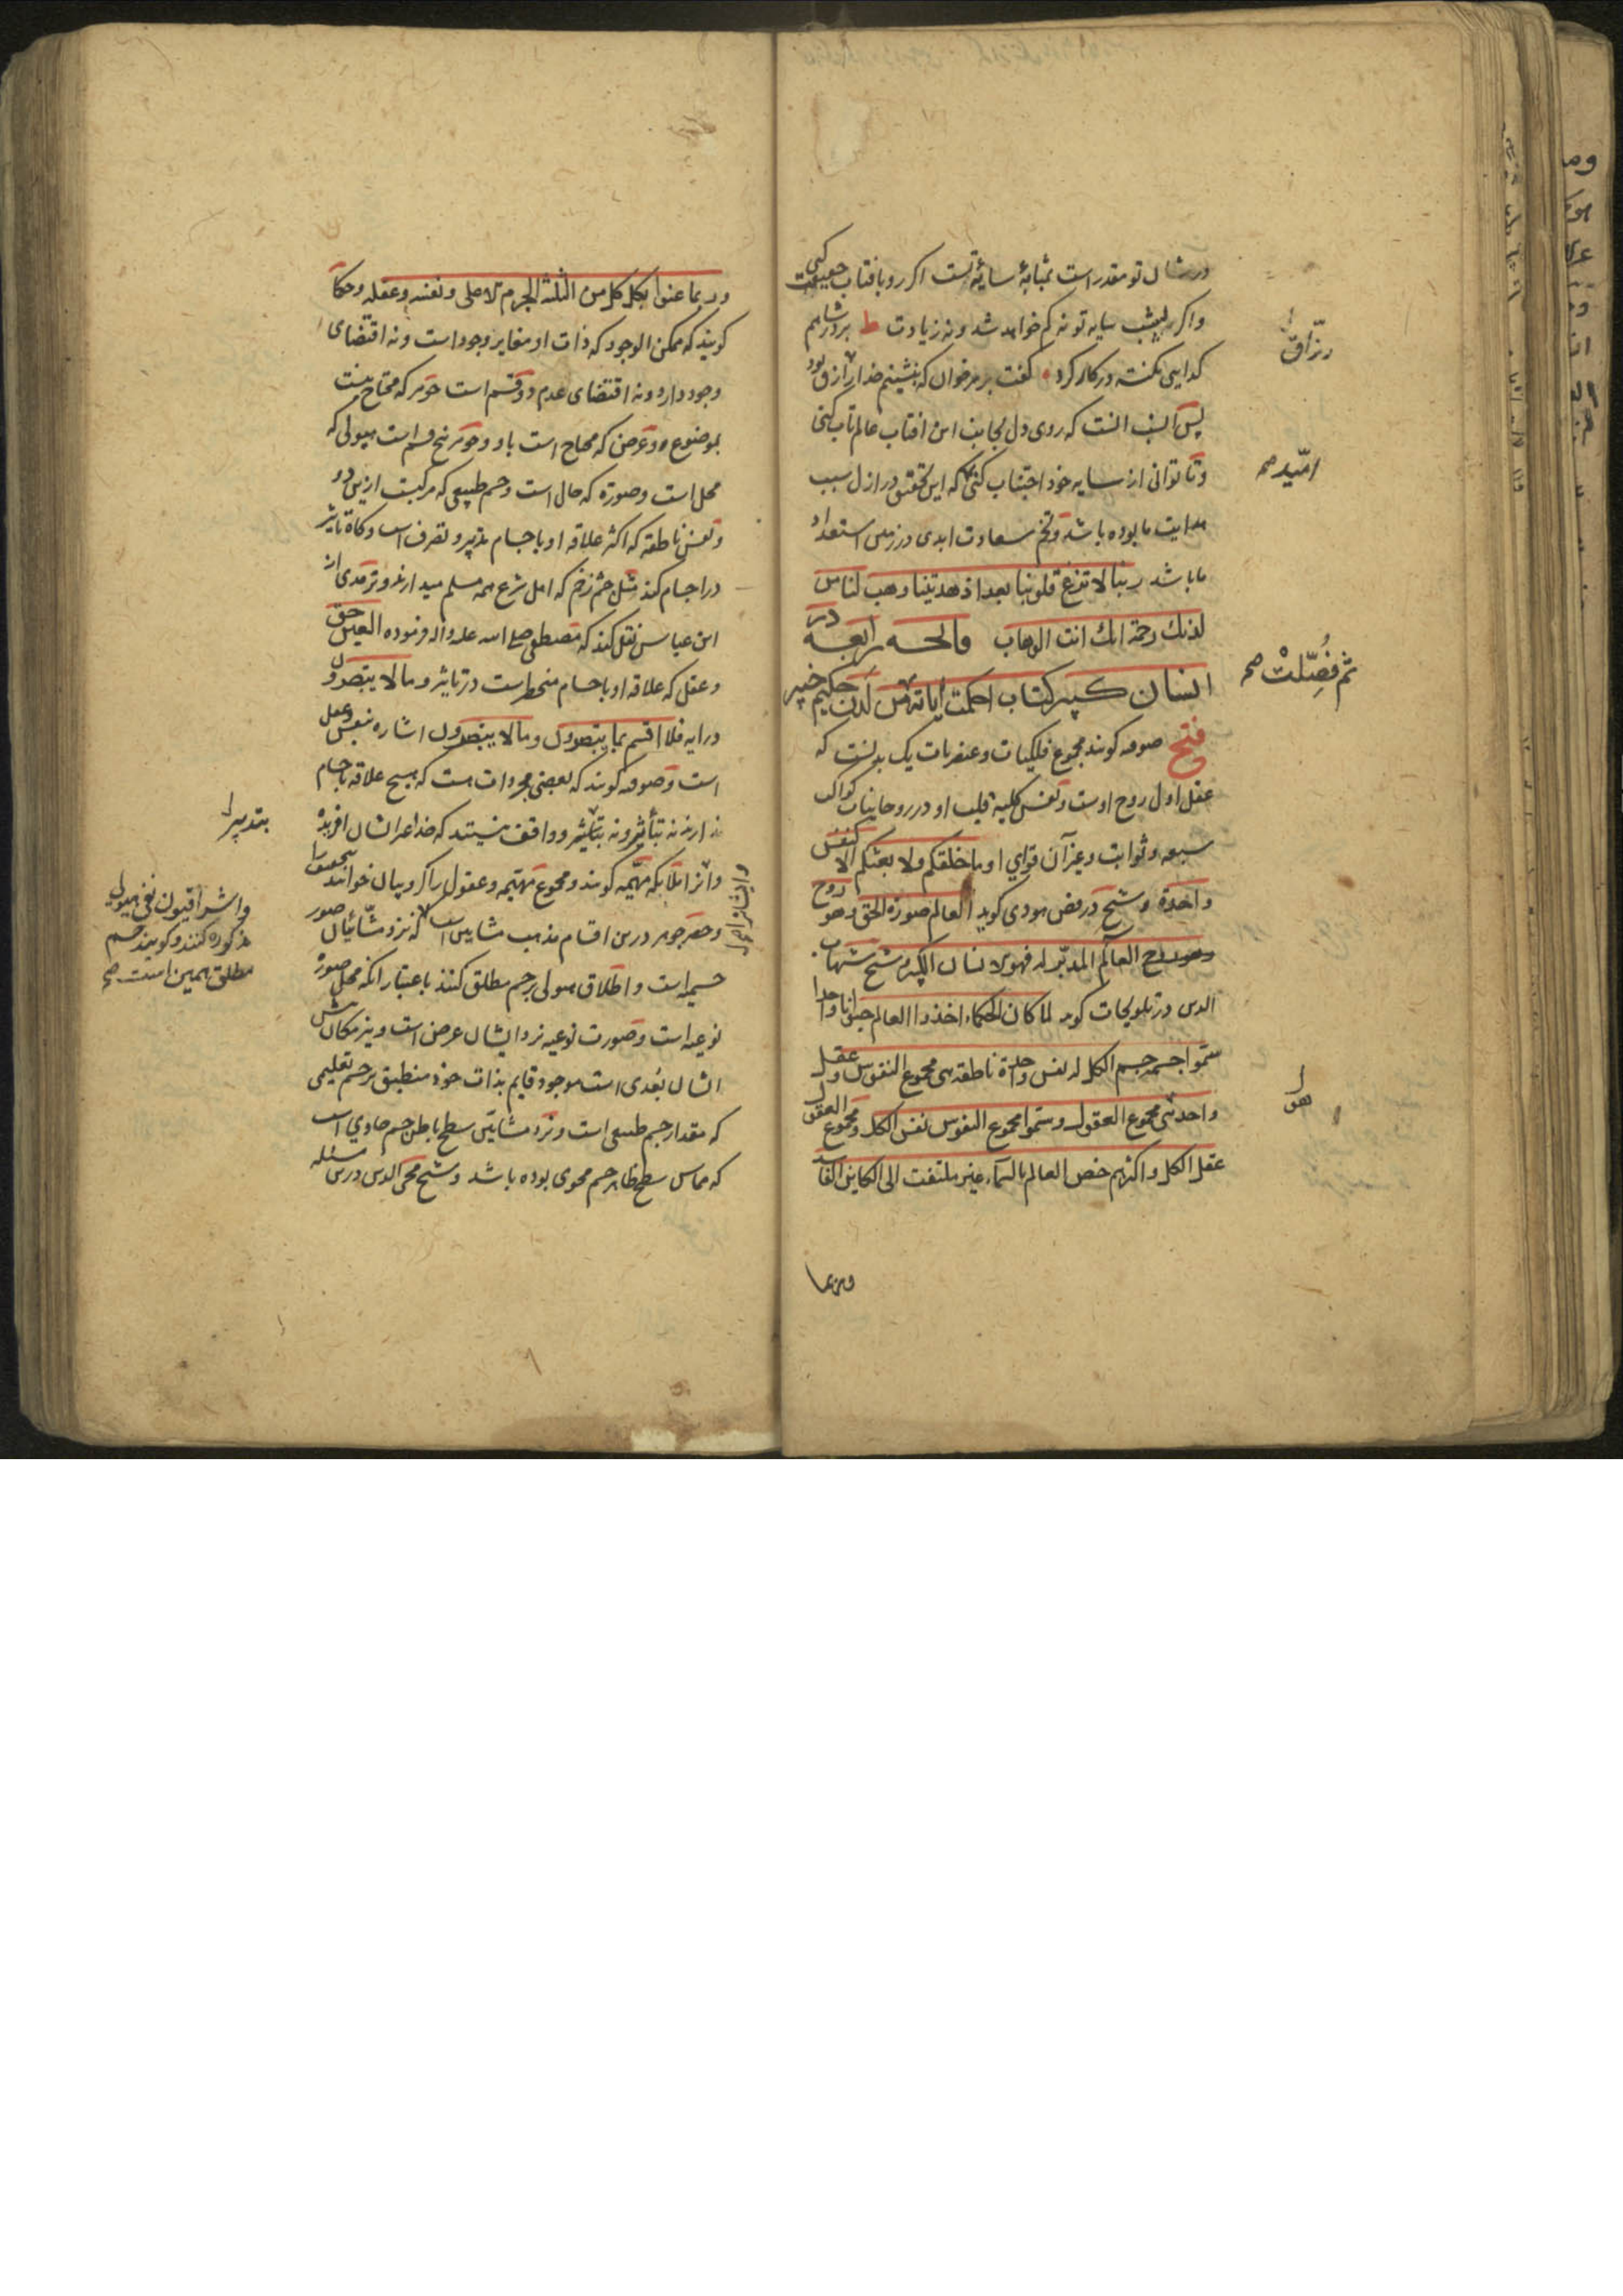 در شان تو مقدر است بمثابهٔ سایهٔ تست اکر رو بافتاب حقیقت کنی
واکر پشت سایه تو نه کم خواهد شد و نه زیادت ط بر در شاهم
کدایی نکتهٔ در کار کرد کفت بر هر خوان که بنشینم خدا رزاق بود
پس انسب انست که روی دل بجانب این افتاب عالم تاب کنی
و تا توانی از سایه خود اجتناب کنی که این تحقیق در ازل سبب
هدایت ما بوده باشد و تخم سعادت ابدی در زمین استعداد
ما باشد ربنا لا تزغ قلوبنا بعد اذ هدیتنا وهب لنا من
لدنك رحمة انك انت الوهاب فاتحه رابعه در
انسان کبیر کتاب احکمت ایاته من لدن حکیم خبیر
فتح صوفیه کویند مجموع فلکیات و عنصریات یک بدنست که
عقل اول روح اوست و نفس کلیه قلب او در روحانیات کواکب
سبعه و ثوابت و غیر آن قوای او ما خلقکم ولا بعثکم الا کنفس
واحدة و شیخ در فص هودی کوید العالم صورة الحق وهو روح
العالم المدبّر له فهو الانسان الکبیر و شیخ شهاب
الدین در تلویحات کوید لما کان الحکماء اخذوا العالم حیوانا واحدا
سمّوا جسمه جسم الکل له نفس واحدة ناطقه هی مجموع النفوس وعقل
واحد هی مجموع العقول وسمّوا مجموع النفوس نفس الکل ومجموع العقول
عقل الکل واکثرهم خص العالم بالسماء غیر ملتفت الی الکاین الفاسد
وربما
رزّاق
امّید صح
ثم فُصِّلتْ صح
هو
وربما عنوا بکل کل من الثلثة الجرم الاعلی ونفسه وعقله وحکما
کویند که ممکن الوجود که ذات او مغایر وجود است و نه اقتضای
وجود دارد و نه اقتضای عدم دو قسم است جوهر که محتاج نیست
بموضوع و عرض که محتاج است باو و جوهر پنج قسم است هیولی که
محل است و صورة که حال است و جسم طبیعی که مرکبست ازین دو
و نفس ناطقه که اکثر علاقه او با جسام بتدبیر و تصرف است و کاه تاثیر
در اجسام کند مثل چشم زخم که اهل شرع همه مسلم میدارند و ترمذی از
ابن عباس نقل کند که مصطفی صلی الله علیه واله فرموده العین حق
و عقل که علاقه او باجسام منحصر است در تاثیر و ما لا یبصرون
در آیه فلا اقسم بما تبصرون وما لا تبصرون اشاره بنفس و عقل
است و صوفیه کویند که بعضی مجردات هست که هیچ علاقه باجسام
ندارند نه بتأثیر و نه بتدبیر و واقف نیستند که خدا غیر ایشان افریده
وانرا ملائکه مهیّمه کویند و مجموع مهیّمه و عقول را کروبیان خوانند
و حصر جوهر درین اقسام مذهب مشایین است که نزد مشّائیان صور
جسمیه است و اطلاق هیولی بر جسم مطلق کنند باعتبار انکه محل صورة
نوعیه است و صورت نوعیه نزد ایشان عرض است و نیز مکان پیش
ایشان بُعدی است موجود قایم بذات خود منطبق بر جسم تعلیمی
که مقدار جسم طبیعی است و نزد مشایین سطح باطن جسم حاوی است
که مماس سطح ظاهر جسم محوی بوده باشد و شیخ محی الدین درین مسئله
بتدبیر
واشراقیون نفی هیولی
مذکوره کنند و کویند جسم
مطلق همین است صح